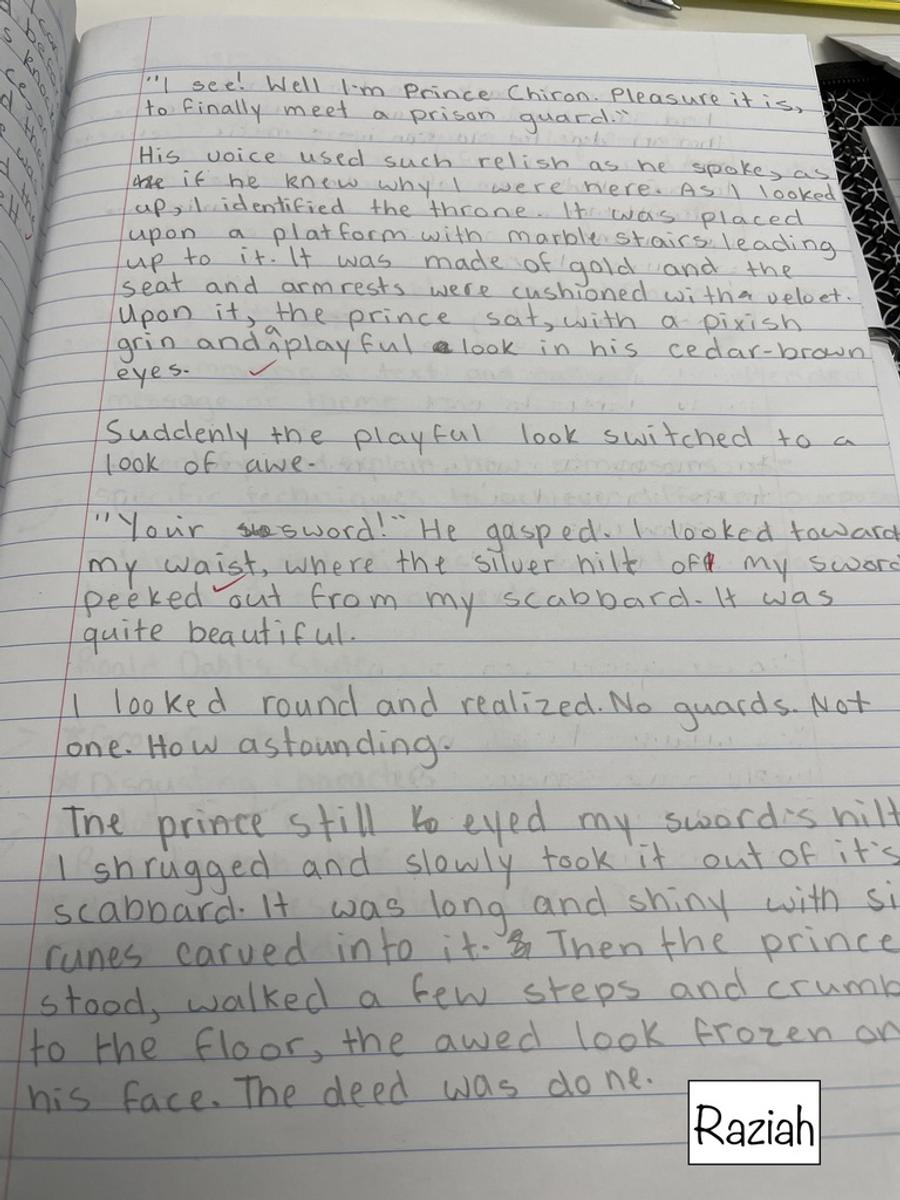 "I see! Well I'm Prince Chiron. Pleasure it is,
to finally meet a prison guard."
His voice used such relish as he spoke, as
if he knew why I were here. As I looked
up, I identified the throne. It was placed
upon a platform with marble stairs leading
up to it. It was made of gold and the
seat and armrests were cushioned with velvet.
Upon it, the prince sat, with a pixish
grin and a playful look in his cedar-brown
eyes.
Suddenly the playful look switched to a
look of awe.
"Your sword!" He gasped. I looked toward
my waist, where the silver hilt of my sword
peeked out from my scabbard. It was
quite beautiful.
I looked round and realized. No guards. Not
one. How astounding.
The prince still eyed my sword's hilt
I shrugged and slowly took it out of it's
scabbard. It was long and shiny with si
runes carved into it. Then the prince
stood, walked a few steps and crumb
to the floor, the awed look frozen on
his face. The deed was done.
Raziah